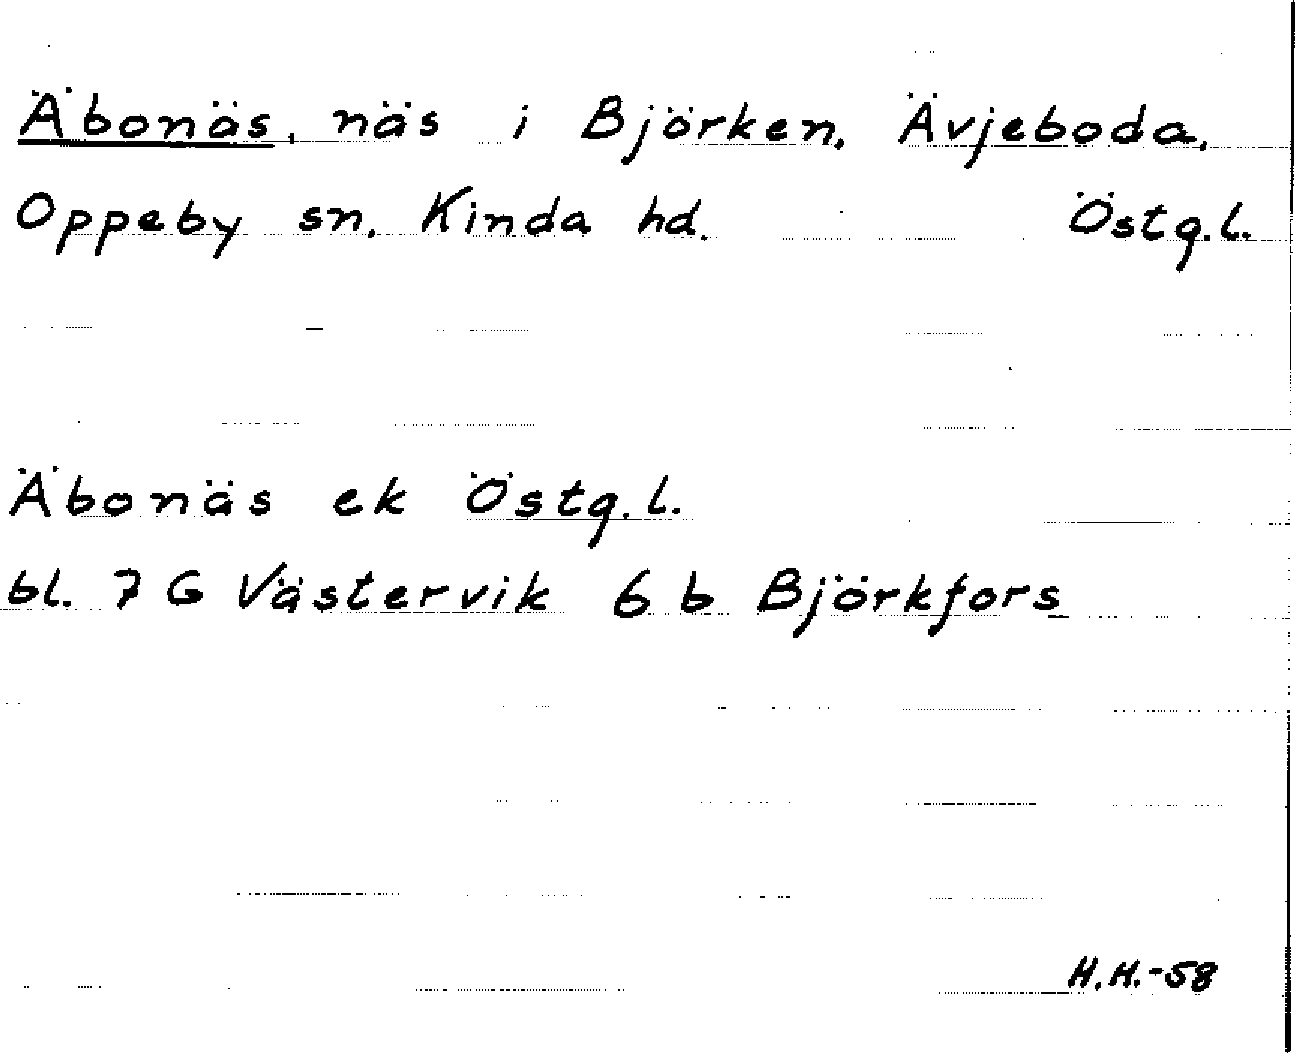 Äbonäs, näs i Björken, Ävjeboda,
Oppeby sn, Kinda hd. Östg.l.
Äbonäs ek Östg.l.
bl. 7 G Västervik 6 b Björkfors
H.H.-58